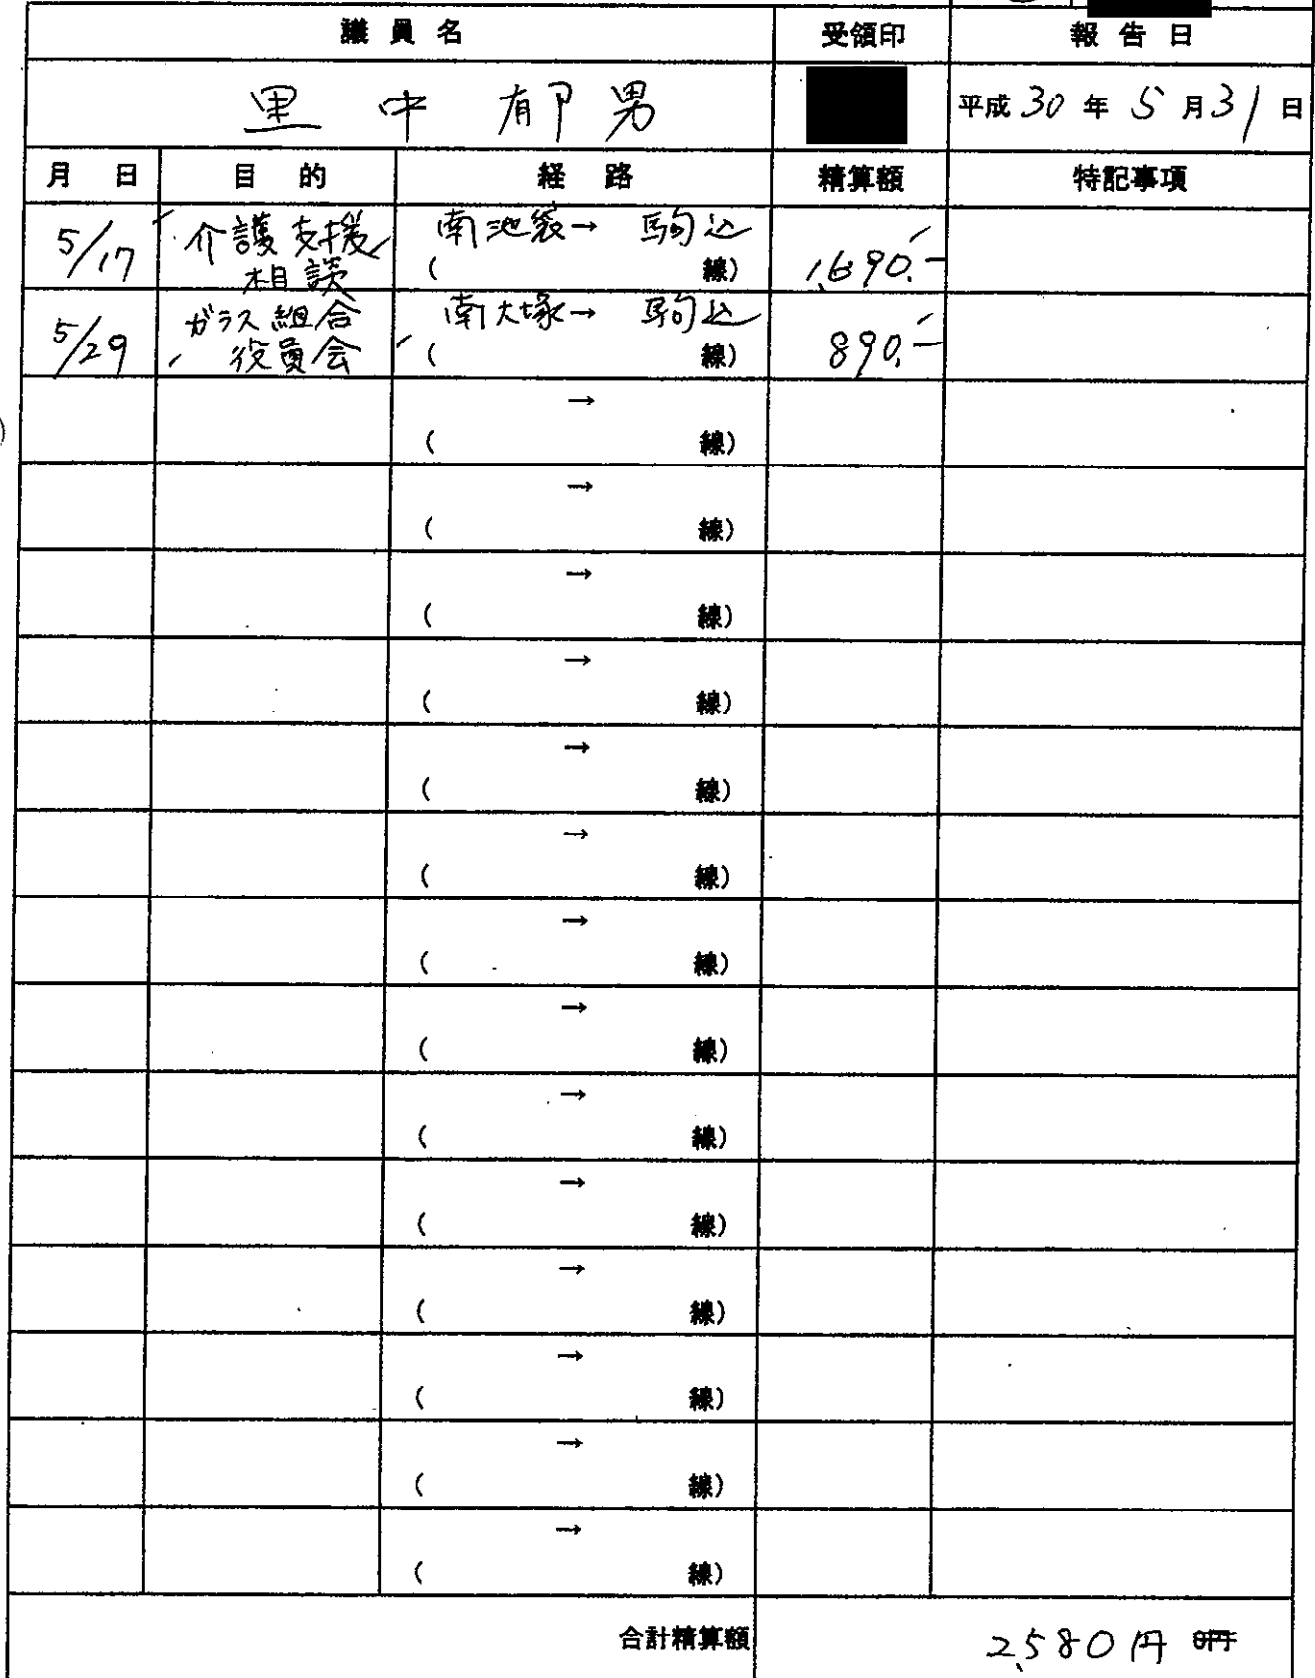 議員名 受領印 報告日
里中郁男 平成30年5月31日
月日 目的 経路 精算額 特記事項
5/17 介護支援相談 南池袋→駒込 ( 線) 1,690.-
5/29 ガラス組合役員会 南大塚→駒込 ( 線) 890.-
→
( 線)
→
( 線)
→
( 線)
→
( 線)
→
( 線)
→
( 線)
→
( 線)
→
( 線)
→
( 線)
→
( 線)
→
( 線)
→
( 線)
→
( 線)
→
( 線)
合計精算額 2,580円 0円